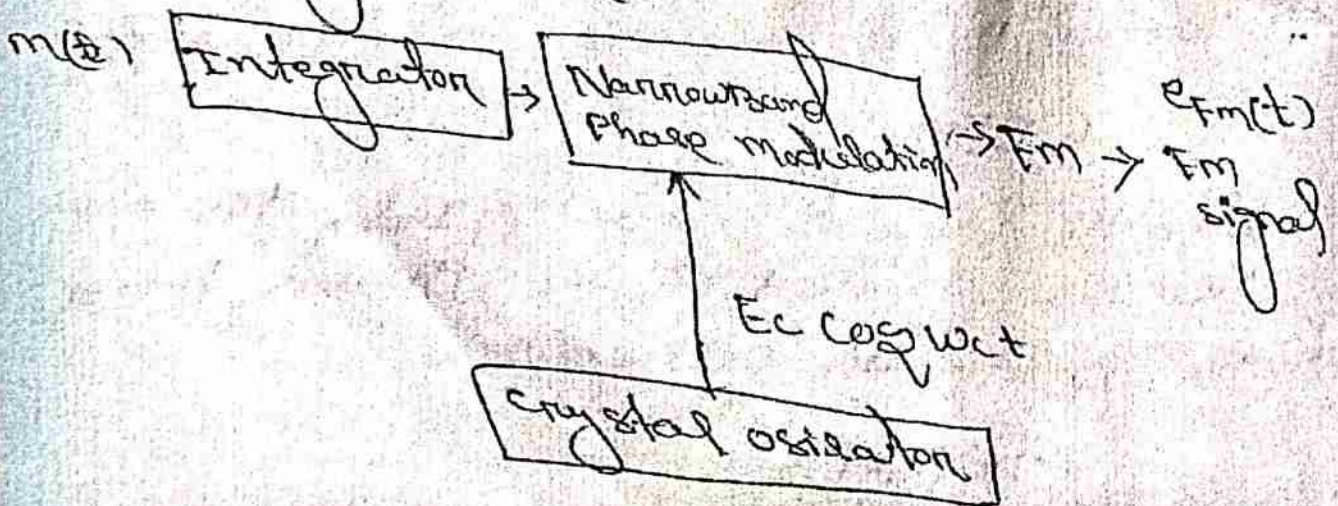 m(t)
Integrator
Narrowband
Phase modulation
Fm
eFm(t)
Fm
signal
Ec cos wct
crystal osilator